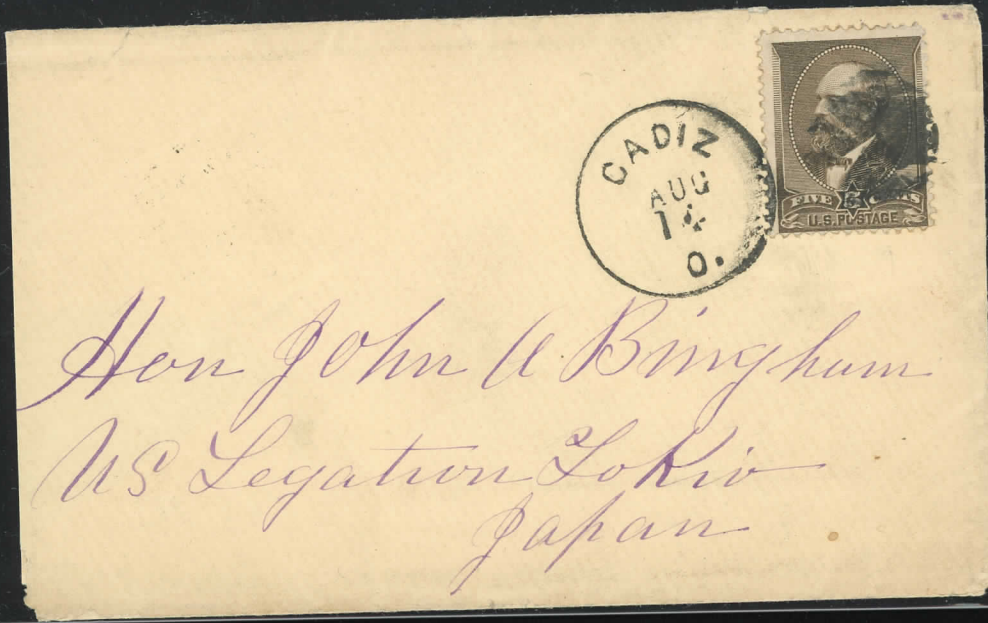 CADIZ
AUG
14
O.
FIVE 5 CENTS
U.S. POSTAGE
Hon John A Bingham
US Legation Tokio
Japan